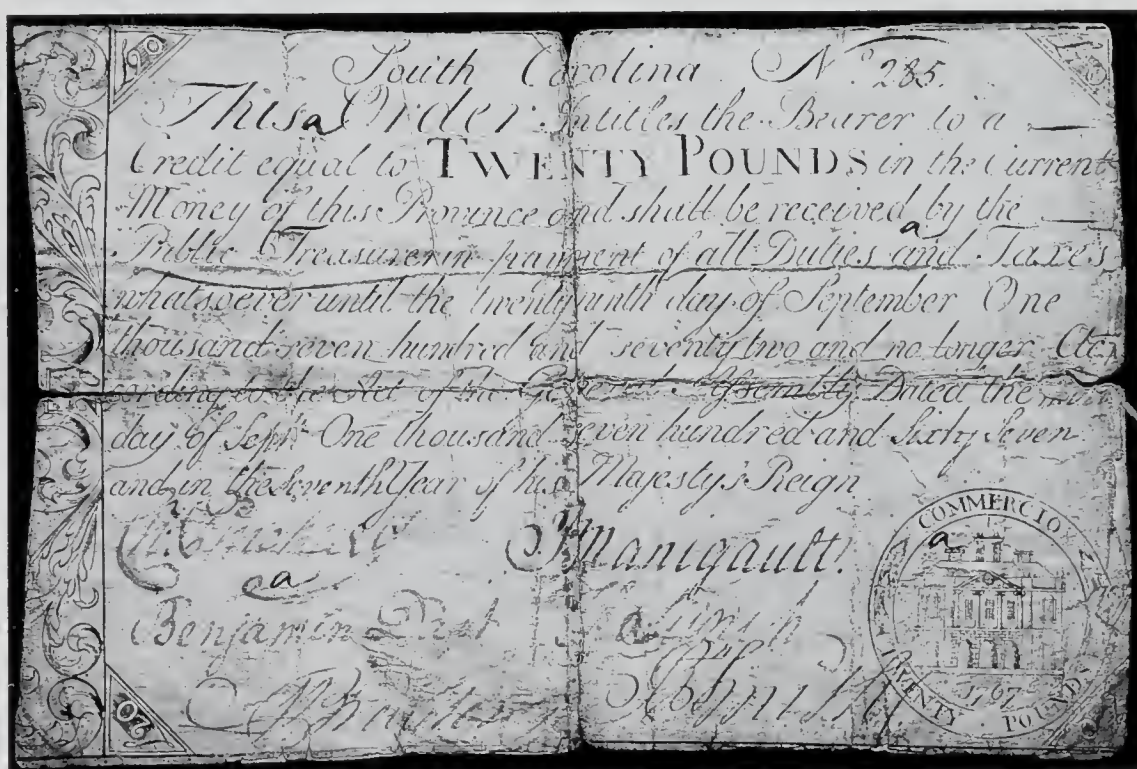 £20
South Carolina Nº 285.
This Order Entitles the Bearer to a
Credit equal to TWENTY POUNDS in the Current
Money of this Province and shall be received by the
Public Treasurer in payment of all Duties and Taxes
whatsoever until the twenty ninth day of September One
thousand seven hundred and seventy two and no longer Ac
cording to the Act of the General Assembly Dated the
day of Septr. One thousand seven hundred and Sixty Seven
and in the Seventh Year of his Majesty's Reign
Manigault.
Benjamin
Lynch
COMMERCIO
1767
TWENTY · POUNDS
£20